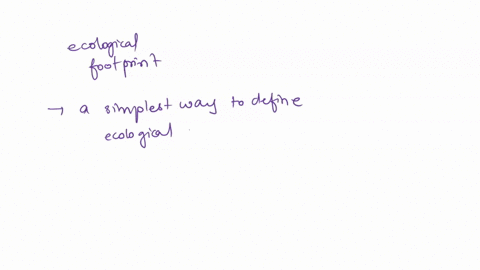 ecological
footprint
→ a simplest way to define
ecological